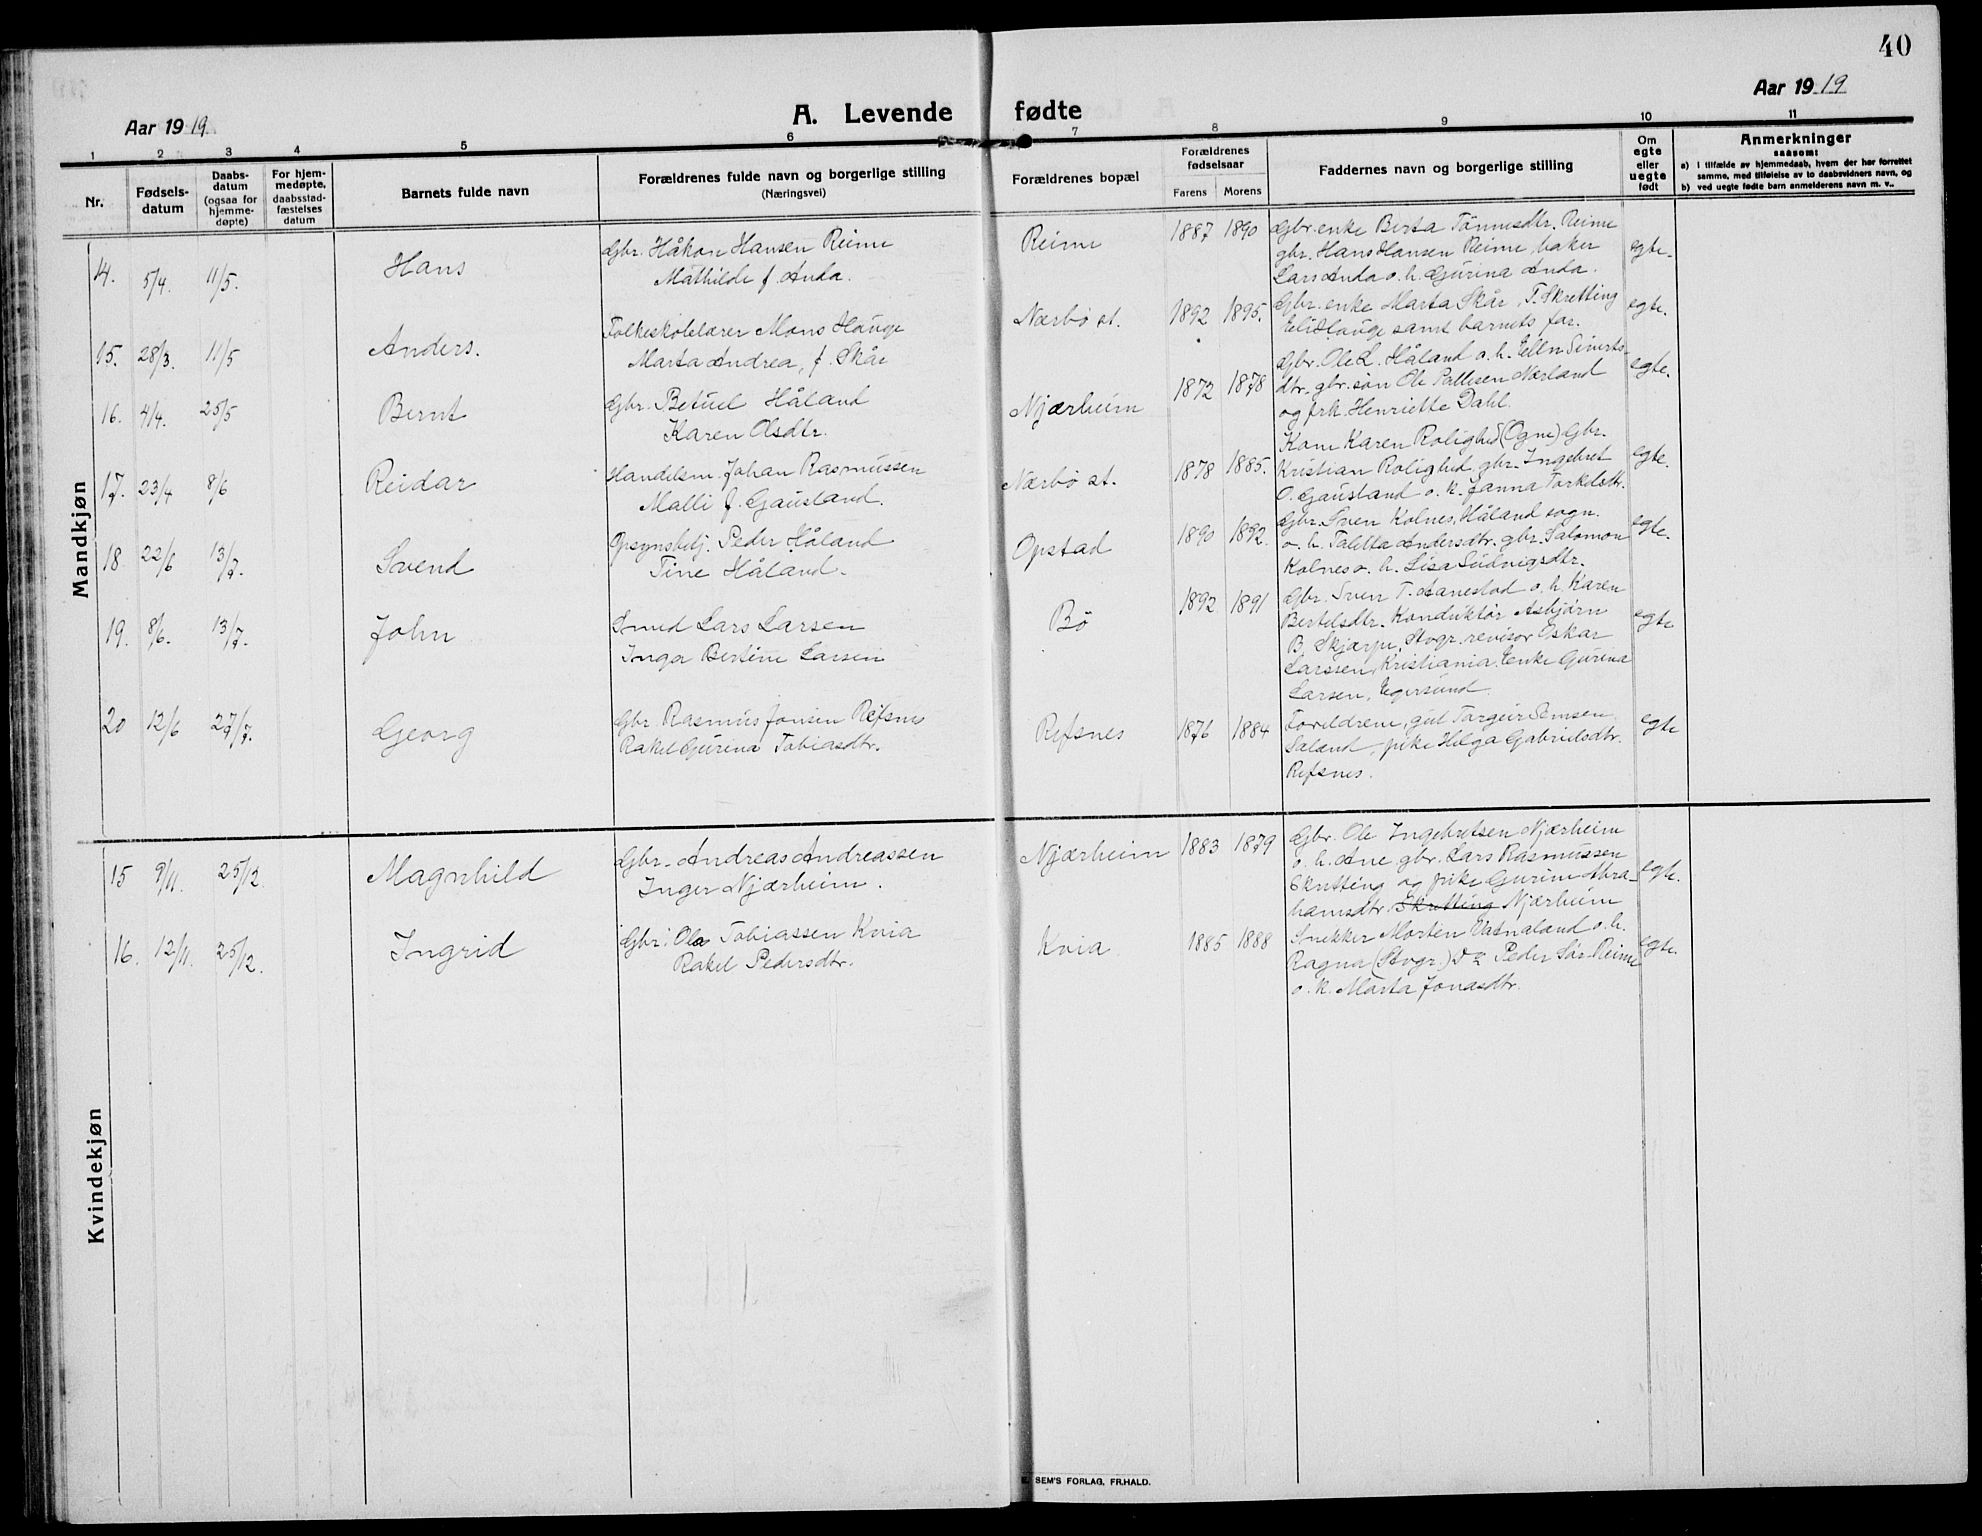 40
Aar 1919
A. Levende fødte
Aar 1919
1 2 3 4 5 6 7 8 9 10 11
Nr.
Fødsels-
datum
Daabs-
datum
(ogsaa for
hjemme-
døpte)
For hjem-
medøpte,
daabsstad-
fæstelses
datum
Barnets fulde navn
Forældrenes fulde navn og borgerlige stilling
(Næringsvei)
Forældrenes bopæl
Forældrenes
fødselsaar
Farens Morens
Faddernes navn og borgerlige stilling
Om
egte
eller
uegte
født
Anmerkninger
saasom:
a) i tilfælde av hjemmedaab, hvem der har forrettet
samme, med tilføielse av to daabsvidners navn, og
b) ved uegte fødte barn anmelderens navn m. v..
Mandkjøn
14. 5/4. 11/5. Hans
Gbr. Håkon Hansen Reime
Mathilde f. Anda.
Reime 1887 1890
Gbr. enke Berta Tönnesdtr. Reime
gbr. Hans Hansen Reime, baker
Lars Anda o. h. Gurina Anda.
egte.
15. 28/3. 11/5 Anders.
Folkeskolelærer Mons Hauge
Marta Andrea, f. Skår
Nærbö st. 1892 1895.
Gbr. enke Marta Skår, T. Skretting
Eli Hauge samt barnets far.
egte.
16. 4/4. 25/5 Bernt
Gbr. Betuel Håland
Karen Olsdtr.
Njærheim 1872 1878
Gbr. Ole L. Håland o. h. Ellen Sivertsdtr.
gbr. sön Ole Pallesen Nærland
og frk. Henriette Dahl.
egte.
17. 23/4 8/6 Reidar
Handelsm. Johan Rasmussen
Malli f. Gausland.
Nærbö st. 1878 1885.
Kone Karen Rolighed (Ogne) Gbr.
Kristian Rolighed, gbr. Ingebret
O. Gausland o. k. Janna Torkelsdtr.
egte.
18. 22/6 13/7. Svend
Opsynsbetj. Peder Håland
Tine Håland.
Opstad 1890 1892.
Gbr. Sven Kolnes, Håland sogn.
o. h. Taletta Andersdtr. gbr. Salomon
Kolnes o. h. Lisa Ludvigsdtr.
egte.
19. 8/6. 13/7. John
Smed Lars Larsen
Inga Bertine Larsen
Bö 1892 1891
Gbr. Sven T. Aanestad o. h. Karen
Bertelsdtr. Konduktör Asbjörn
B. Skjærpe, Stvgr. revisor Oskar
Larssen, Kristiania. Enke Gurina
Larsen, Egersund.
egte
20 12/6 27/7. Georg
Gbr. Rasmus Jonsen Refsnes
Rakel Gurina Tobiasdtr.
Refsnes 1876 1884
Foreldrene, gut Torgeir Semsen
Laland, pike Helga Gabrielsdtr.
Refsnes.
egte
Kvindekjøn
15 9/11. 25/12. Magnhild
Gbr. Andreas Andreassen
Inger Njærheim.
Njærheim 1883 1879
Gbr. Ole Ingebretsen Njærheim
o. h. Ane gbr. Lars Rasmussen
Skretting og pike Gurine Abra-
hamsdtr. Skretting Njærheim
egte.
16. 12/11. 25/12. Ingrid
Gbr. Ola Tobiassen Kvia
Rakel Pedersdtr.
Kvia 1885 1888
Snekker Morten Vatnaland o. h.
Ragna (Stvgr.) Do Peder Sör-Reime
o. k. Marta Jonasdtr.
egte.
E. SEM'S FORLAG, FR.HALD.